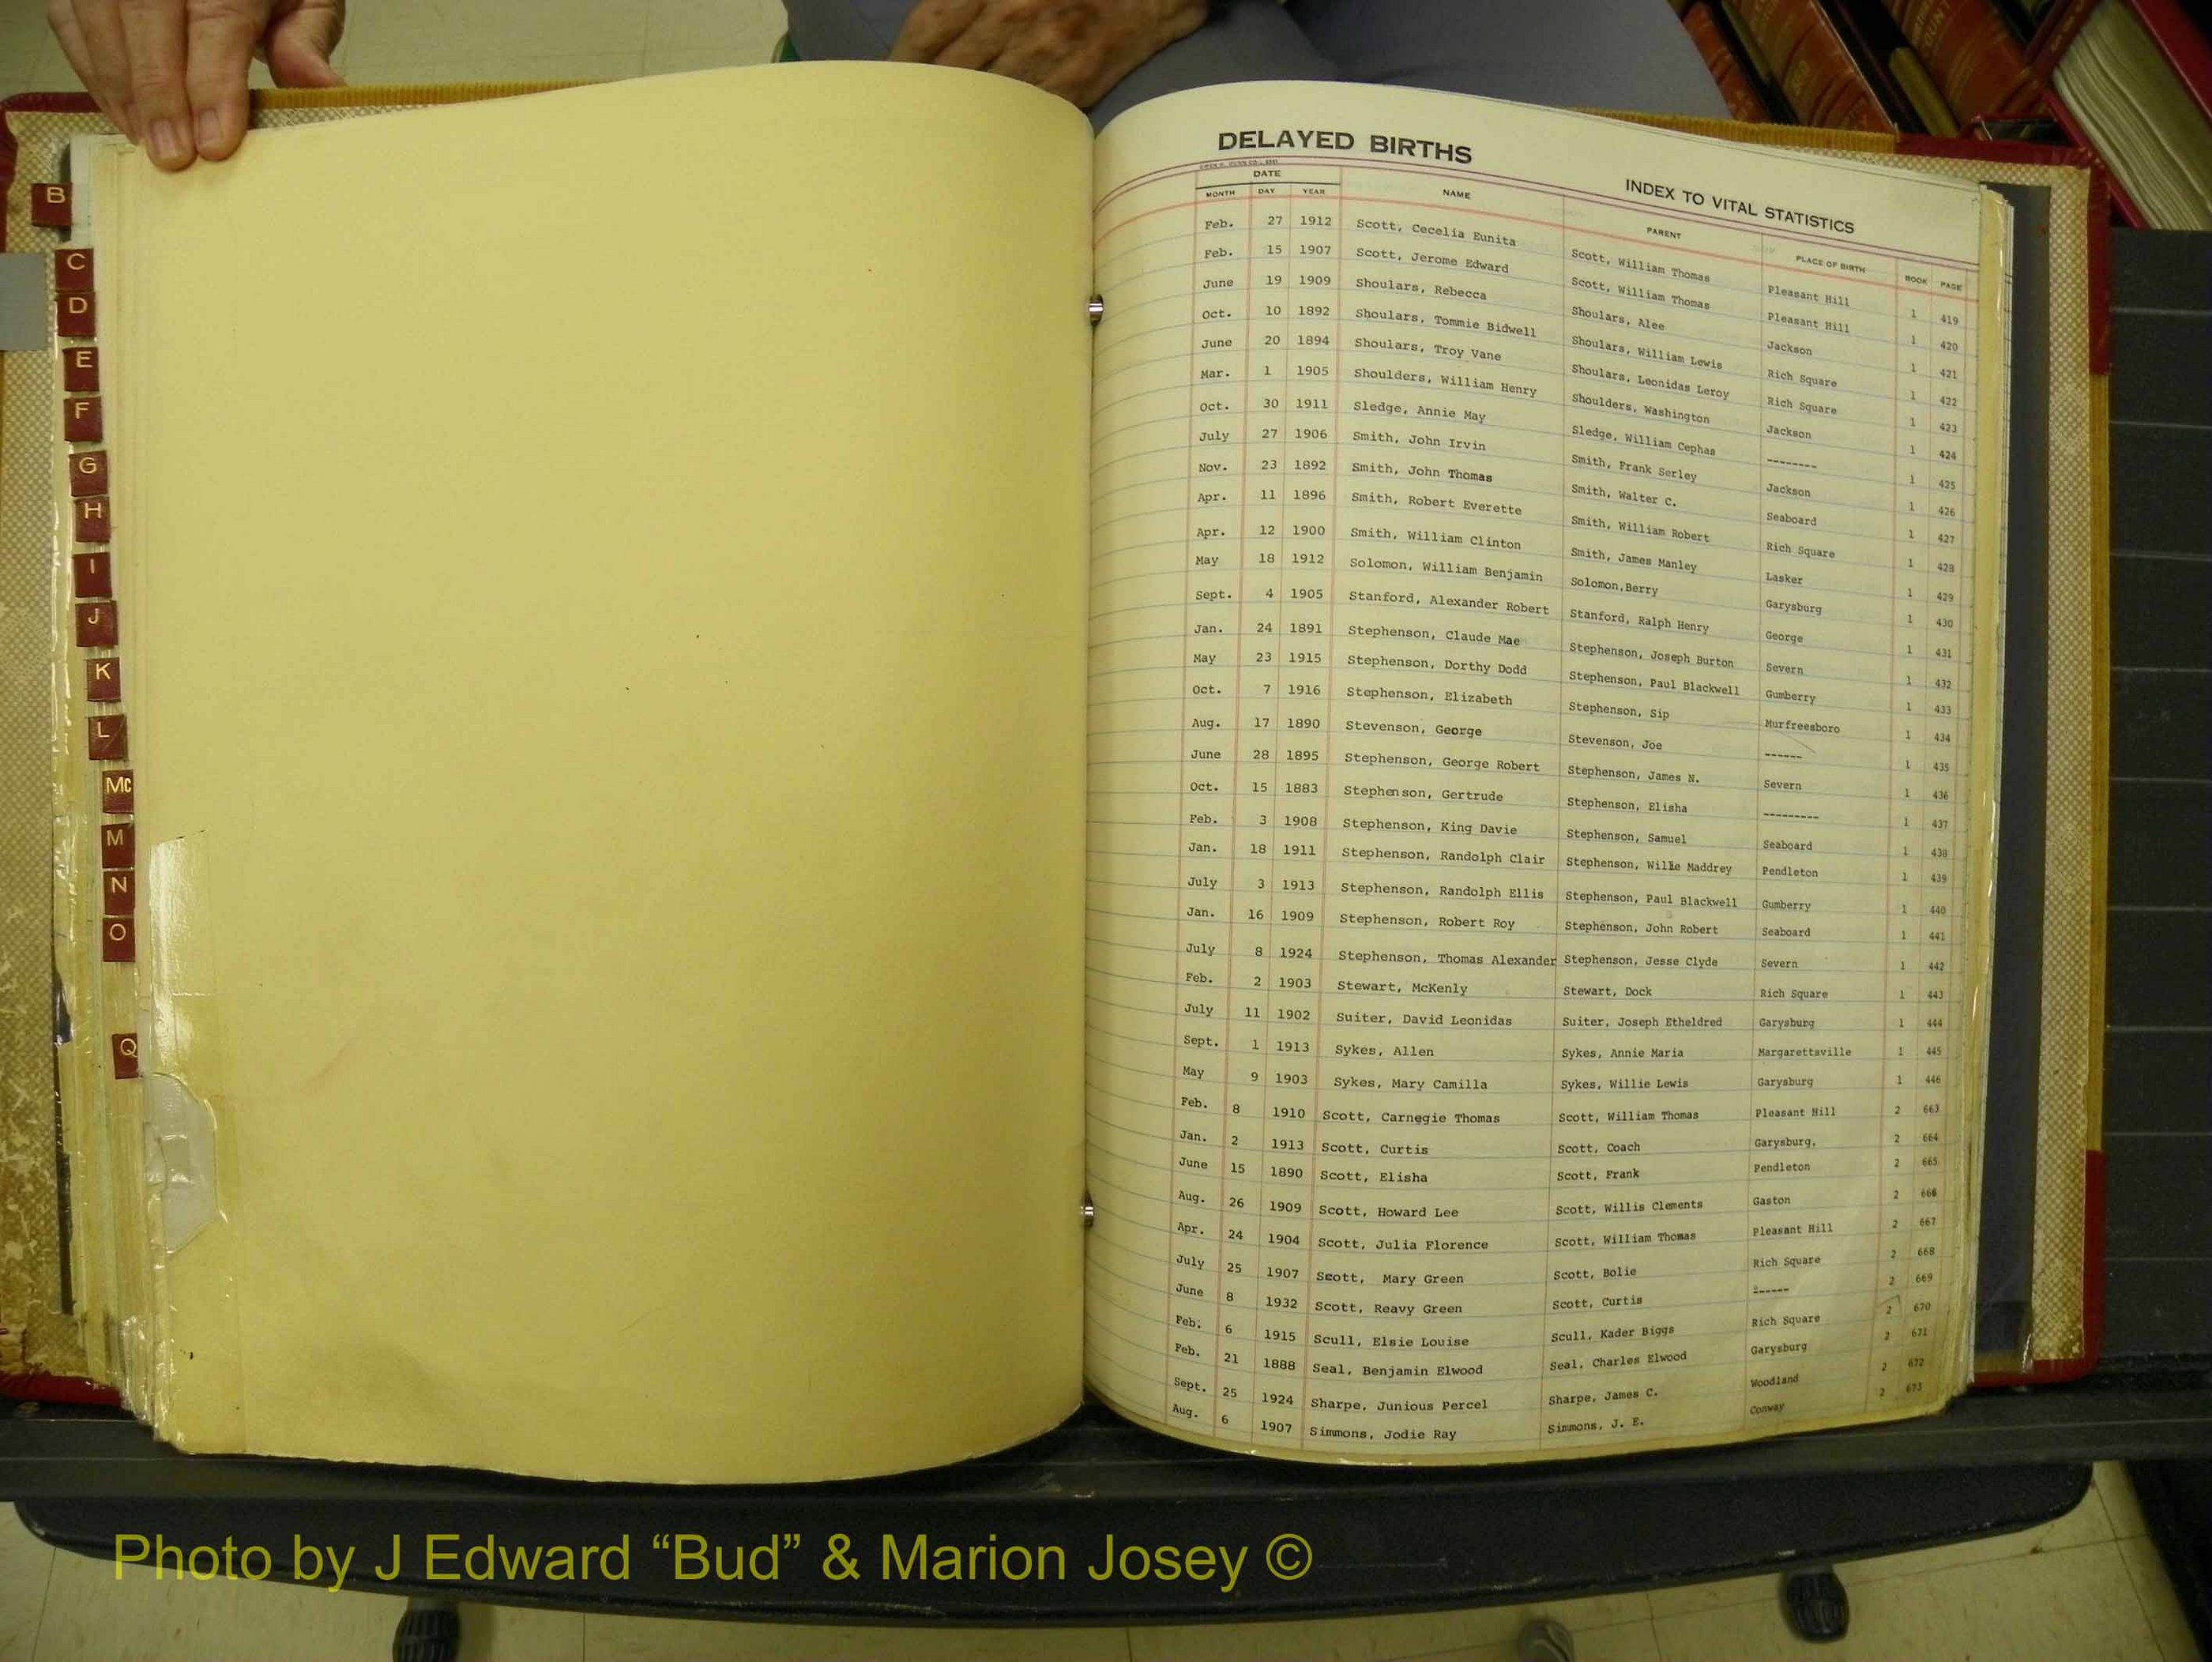 DELAYED BIRTHS
INDEX TO VITAL STATISTICS
DATE
MONTH DAY YEAR NAME PARENT PLACE OF BIRTH BOOK PAGE
Feb. 27 1912 Scott, Cecelia Eunita Scott, William Thomas Pleasant Hill 1 419
Feb. 15 1907 Scott, Jerome Edward Scott, William Thomas Pleasant Hill 1 420
June 19 1909 Shoulars, Rebecca Shoulars, Alee Jackson 1 421
Oct. 10 1892 Shoulars, Tommie Bidwell Shoulars, William Lewis Rich Square 1 422
June 20 1894 Shoulars, Troy Vane Shoulars, Leonidas Leroy Rich Square 1 423
Mar. 1 1905 Shoulders, William Henry Shoulders, Washington Jackson 1 424
Oct. 30 1911 Sledge, Annie May Sledge, William Cephas -------- 1 425
July 27 1906 Smith, John Irvin Smith, Frank Serley Jackson 1 426
Nov. 23 1892 Smith, John Thomas Smith, Walter C. Seaboard 1 427
Apr. 11 1896 Smith, Robert Everette Smith, William Robert Rich Square 1 428
Apr. 12 1900 Smith, William Clinton Smith, James Manley Lasker 1 429
May 18 1912 Solomon, William Benjamin Solomon,Berry Garysburg 1 430
Sept. 4 1905 Stanford, Alexander Robert Stanford, Ralph Henry George 1 431
Jan. 24 1891 Stephenson, Claude Mae Stephenson, Joseph Burton Severn 1 432
May 23 1915 Stephenson, Dorthy Dodd Stephenson, Paul Blackwell Gumberry 1 433
Oct. 7 1916 Stephenson, Elizabeth Stephenson, Sip Murfreesboro 1 434
Aug. 17 1890 Stevenson, George Stevenson, Joe ------ 1 435
June 28 1895 Stephenson, George Robert Stephenson, James N. Severn 1 436
Oct. 15 1883 Stephenson, Gertrude Stephenson, Elisha --------- 1 437
Feb. 3 1908 Stephenson, King Davie Stephenson, Samuel Seaboard 1 438
Jan. 18 1911 Stephenson, Randolph Clair Stephenson, Willie Maddrey Pendleton 1 439
July 3 1913 Stephenson, Randolph Ellis Stephenson, Paul Blackwell Gumberry 1 440
Jan. 16 1909 Stephenson, Robert Roy Stephenson, John Robert Seaboard 1 441
July 8 1924 Stephenson, Thomas Alexander Stephenson, Jesse Clyde Severn 1 442
Feb. 2 1903 Stewart, McKenly Stewart, Dock Rich Square 1 443
July 11 1902 Suiter, David Leonidas Suiter, Joseph Etheldred Garysburg 1 444
Sept. 1 1913 Sykes, Allen Sykes, Annie Maria Margarettsville 1 445
May 9 1903 Sykes, Mary Camilla Sykes, Willie Lewis Garysburg 1 446
Feb. 8 1910 Scott, Carnegie Thomas Scott, William Thomas Pleasant Hill 2 663
Jan. 2 1913 Scott, Curtis Scott, Coach Garysburg, 2 664
June 15 1890 Scott, Elisha Scott, Frank Pendleton 2 665
Aug. 26 1909 Scott, Howard Lee Scott, Willis Clements Gaston 2 666
Apr. 24 1904 Scott, Julia Florence Scott, William Thomas Pleasant Hill 2 667
July 25 1907 Scott, Mary Green Scott, Bolie Rich Square 2 668
June 8 1932 Scott, Reavy Green Scott, Curtis ------ 2 669
Feb. 6 1915 Scull, Elsie Louise Scull, Kader Biggs Rich Square 2 670
Feb. 21 1888 Seal, Benjamin Elwood Seal, Charles Elwood Garysburg 2 671
Sept. 25 1924 Sharpe, Junious Percel Sharpe, James C. Woodland 2 672
Aug. 6 1907 Simmons, Jodie Ray Simmons, J. E. Conway 2 673
B
C
D
E
F
G
H
I
J
K
L
Mc
M
N
O
Q
Photo by J Edward “Bud” & Marion Josey ©